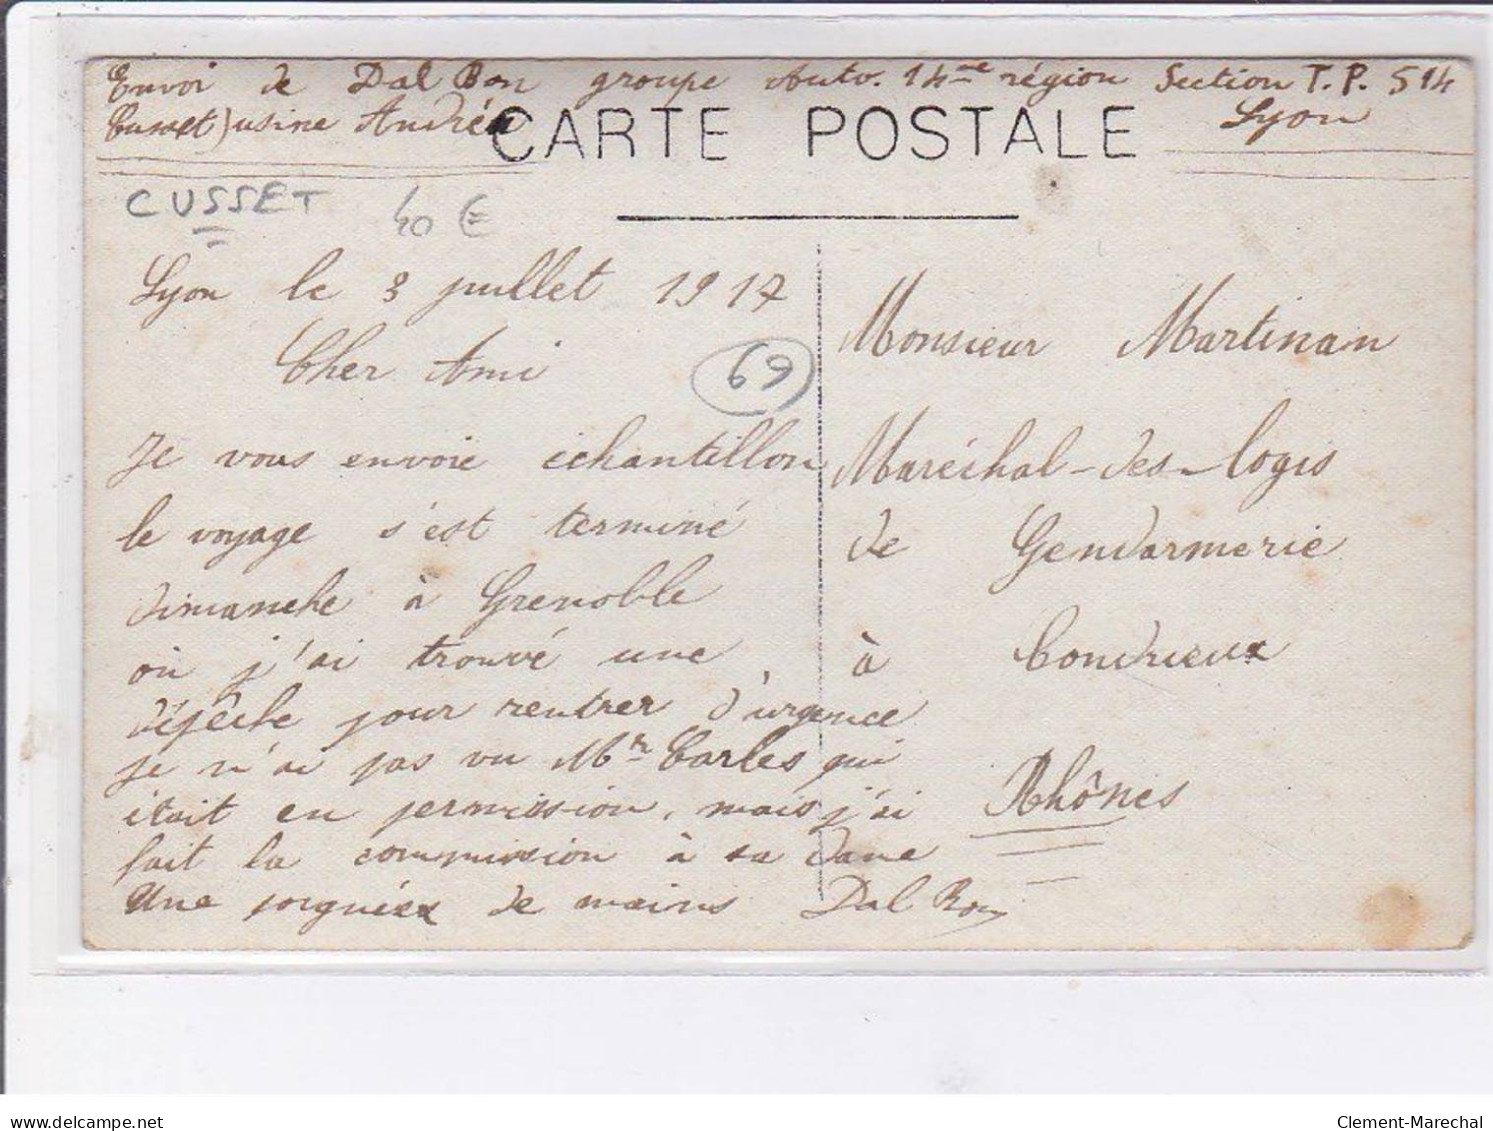 Envoi de Dal Bon groupe Auto. 14me région Section T.P. 514
Cusset) usine André Lyon
CARTE POSTALE
CUSSET 40 €
Lyon le 3 juillet 1917
Cher Ami
69
Je vous envoie échantillon
le voyage s'est terminé
dimanche à Grenoble
où j'ai trouvé une
dépêche pour rentrer d'urgence
je n'ai pas vu Mr Carles qui
était en permission, mais j'ai
fait la commission à sa dame
Une poignées de mains Dal Bon
Monsieur Martinan
Maréchal-des-logis
de Gendarmerie
à Condrieux
Rhônes
delcampe.net
Clement-Marechal